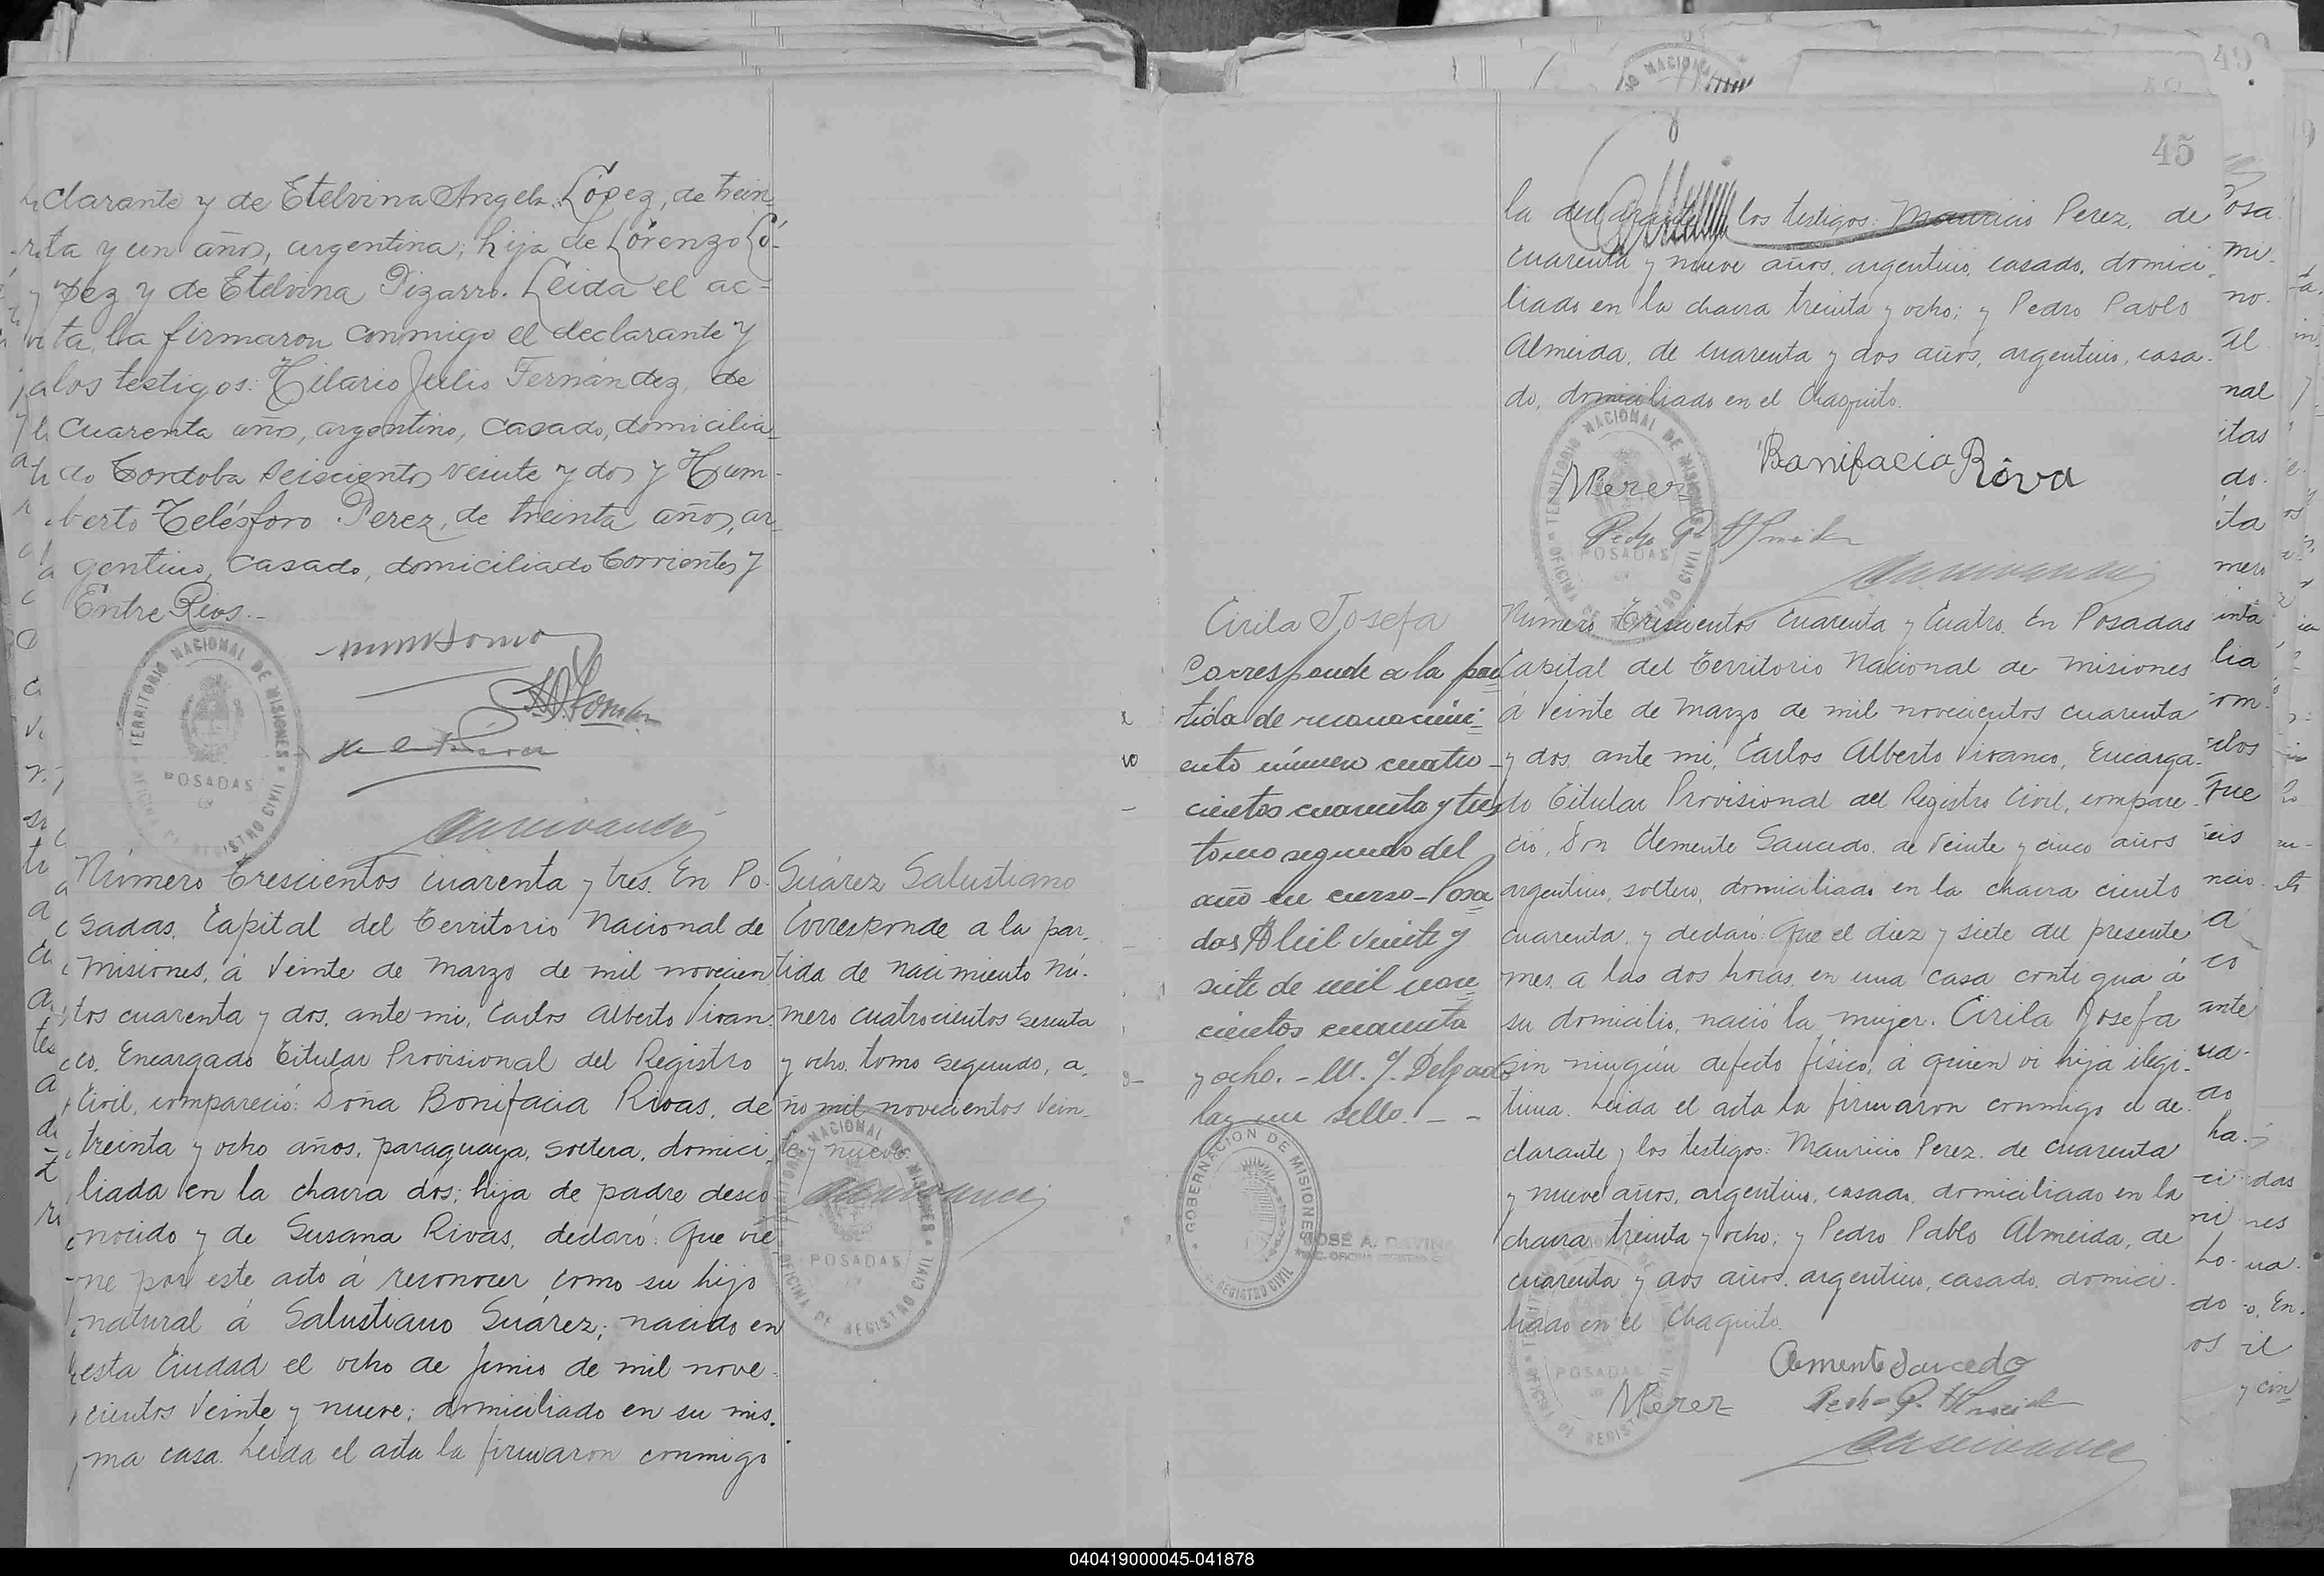 clarante y de Etelvina Angela López, de trein-
ta y un años, argentina; hija de Lorenzo Ló-
pez y de Etelvina Pizarro. Leida el ac-
ta la firmaron conmigo el declarante y
los testigos: Hilario Julio Fernández, de
cuarenta años, argentino, casado, domicilia-
do Cordoba seiscientos veinte y dos y Hum-
berto Telésforo Perez, de treinta años, ar-
gentino, casado, domiciliado Corrientes y
Entre Rios.-
TERRITORIO NACIONAL DE MISIONES
POSADAS
OFICINA DE REGISTRO CIVIL
Número Trescientos cuarenta y tres. En Po-
sadas, Capital del Territorio Nacional de
Misiones, á Veinte de Marzo de mil novecien
tos cuarenta y dos, ante mi, Carlos Alberto Vivan-
co, Encargado Titular Provisional del Registro
Civil, compareció: Doña Bonifacia Rivas, de
treinta y ocho años, paraguaya, soltera, domici-
liada en la chacra dos; hija de padre desco
nocido y de Susana Rivas, declaró: Que vie-
ne por este acto á reconocer como su hijo
natural á Salustiano Suárez; nacido en
esta Ciudad el ocho de Junio de mil nove-
cientos Veinte y nueve; domiciliado en su mis-
ma casa. Leida el acta la firmaron conmigo
Suárez Salustiano
Corresponde a la par-
tida de nacimiento nú-
mero cuatrocientos sesenta
y ocho, tomo segundo, a-
ño mil novecientos vein-
te y nueve.
TERRITORIO NACIONAL DE MISIONES
POSADAS
OFICINA DE REGISTRO CIVIL
45
la declarante y los testigos: Mauricio Perez, de
cuarenta y nueve años, argentino, casado, domici-
liado en la chacra treinta y ocho; y Pedro Pablo
Almeida, de cuarenta y dos años, argentino, casa-
do, domiciliado en el Chaquito.
Bonifacia Riva
MPerez
Pedro P. Almeida
TERRITORIO NACIONAL DE MISIONES
POSADAS
OFICINA DE REGISTRO CIVIL
Cirila Josefa
Corresponde a la par
tida de reconocimi-
ento número cuatro-
cientos cuarenta y tres
tomo segundo del
año en curso-Posa
das Abril veinte y
siete de mil nove
cientos cuarenta
y ocho. - M. J. Delgado
hay un sello. - -
GOBERNACION DE MISIONES
REGISTRO CIVIL
Número Trescientos Cuarenta y Cuatro. En Posadas
Capital del Territorio Nacional de Misiones
á Veinte de Marzo de mil novecientos cuarenta
y dos, ante mi, Carlos Alberto Vivanco, Encarga-
do Titular Provisional del Registro Civil, compare-
ció, Don Clemente Saucedo, de Veinte y cinco años
argentino, soltero, domiciliado en la chacra ciento
cuarenta, y declaró: Que el diez y siete del presente
mes, a las dos horas, en una casa contigua á
su domicilio, nació la mujer: Cirila Josefa
sin ningún defecto físico, á quien vi hija ilegí-
tima. Leida el acta la firmaron conmigo el de-
clarante y los testigos: Mauricio Perez, de cuarenta
y nueve años, argentino, casado, domiciliado en la
chacra treinta y ocho; y Pedro Pablo Almeida, de
cuarenta y dos años, argentino, casado, domici-
liado en el Chaquito.
Clemente Saucedo
MPerez
Pedro P. Almeida
POSADAS
040419000045-041878